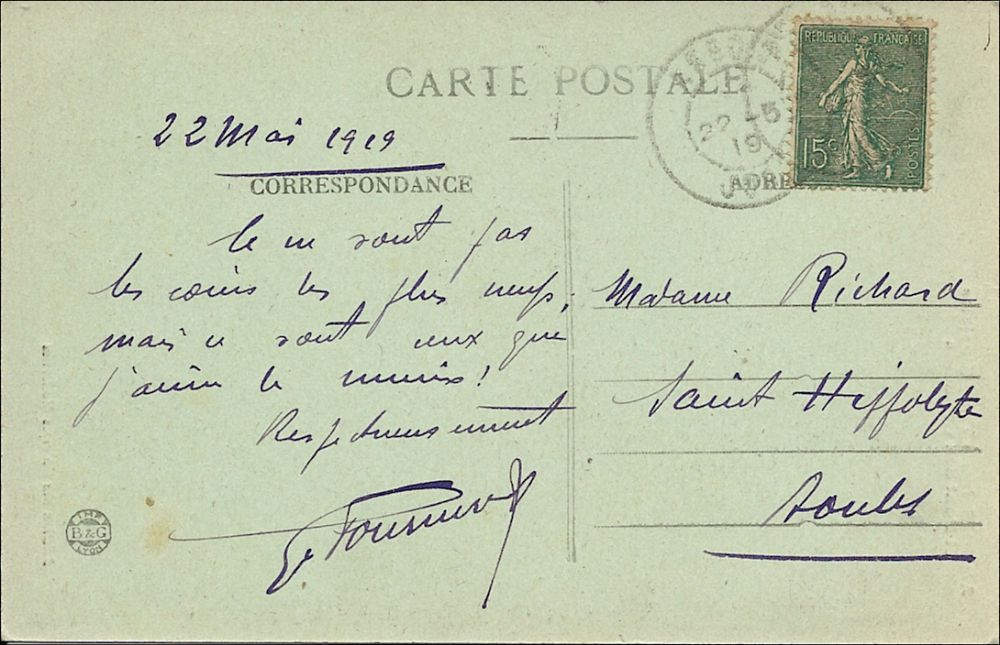 CARTE POSTALE
RÉPUBLIQUE FRANÇAISE
15c
POSTES
22 5
19
22 Mai 1919
CORRESPONDANCE
ADRES
Ce ne sont pas
les coins les plus neufs,
mais ce sont ceux que
j'aime le mieux!
Respectueusement
Fournier
Madame Richard
Saint Hippolyte
Doubs
B&G